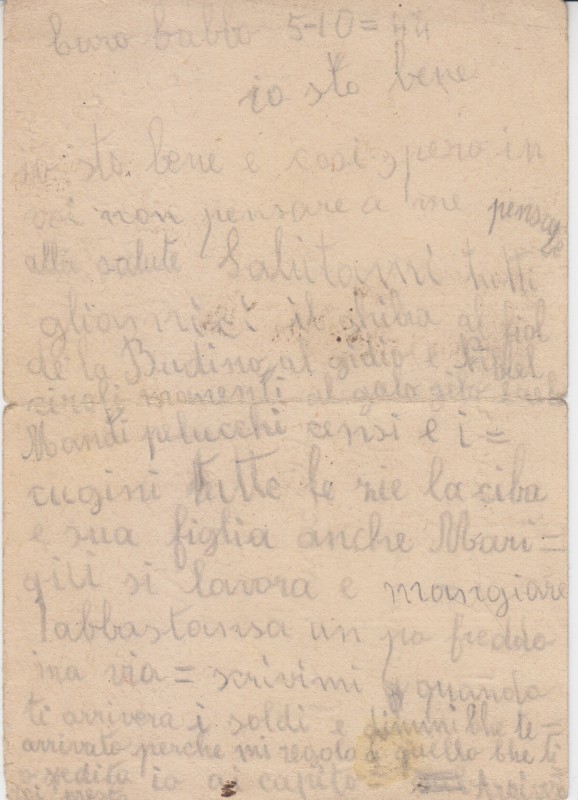 Caro babbo 5-10=44
io sto bene
io sto bene e cosi spero in
voi non pensare a me pensate
alla salute Salutami tutti
gliamici il al fiol
de la Budino al gidio e
momenti al
Mandi pelucchi censi e i=
cugini tutte le zie la ciba
e sua figlia anche Mari=
si lavora e mangiare
labbastansa un po freddo
ma via= scrivimi quando
ti arrivera i soldi e dimmi che te=
arrivato perche mi regola a quello che ti
o spedito io ai capito
presto